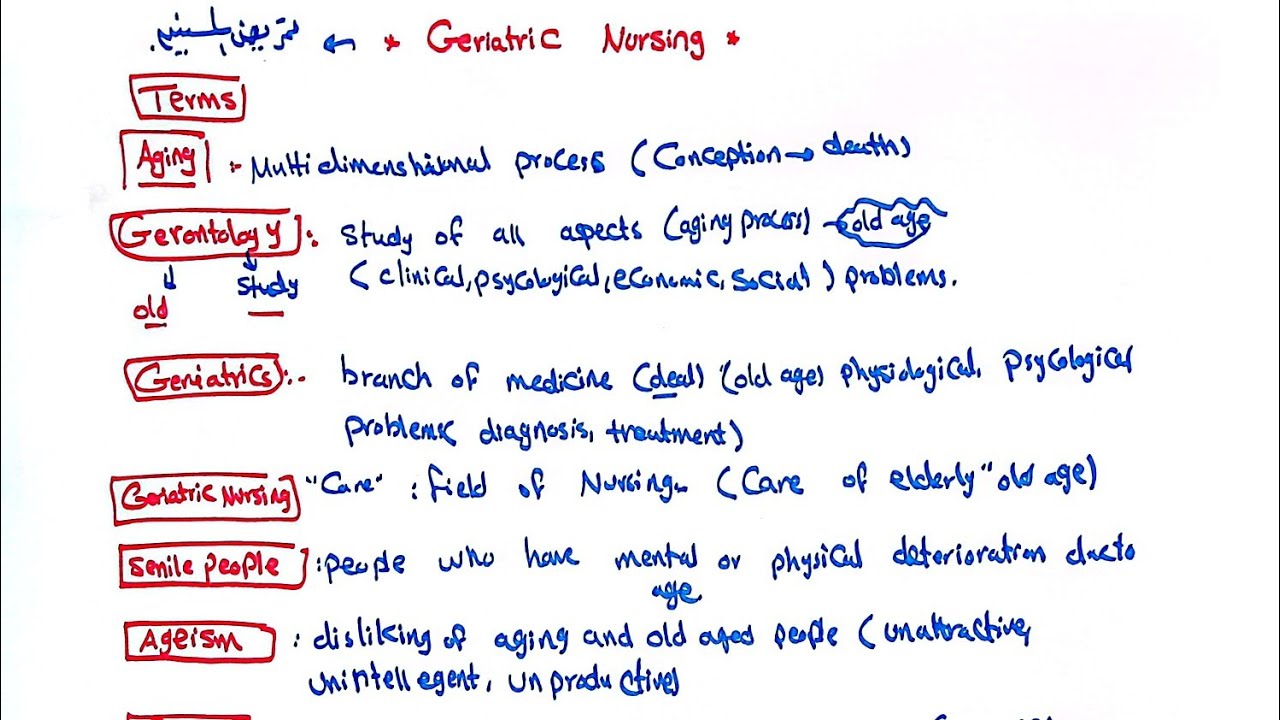 تمريض المسنين ← * Geriatric Nursing *
Terms
Aging :- Multidimenshional process (Conception → death)
Gerontology :- Study of all aspects (aging process) → old age
(clinical, psycological, economic, social) problems.
old study
Geriatrics :- branch of medicine (deal) (old age) physiological, psycological
problems diagnosis, treatment)
Geriatric Nursing "Care" : field of Nursing (Care of elderly "old age)
Senile people : people who have mental or physical deterioration due to
age
Ageism : disliking of aging and old aged people (unattractive,
unintellegent, unproductive)